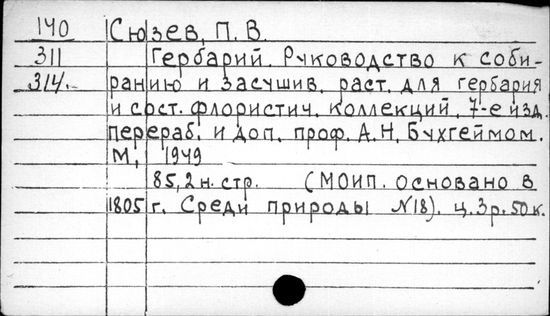 140 Сюзев, П. В.
311 Гербарий. Руководство к соби-
314.- ранию и засушив. раст. для гербария
и сост. флористич. коллекций. 7-е изд.
перераб. и доп. проф. А. Н. Бухгеймом.
М., 1949
85, 2 н. стр. (МОИП. основано в
1805 г. Среди природы №18). ц. 3 р. 50 к.